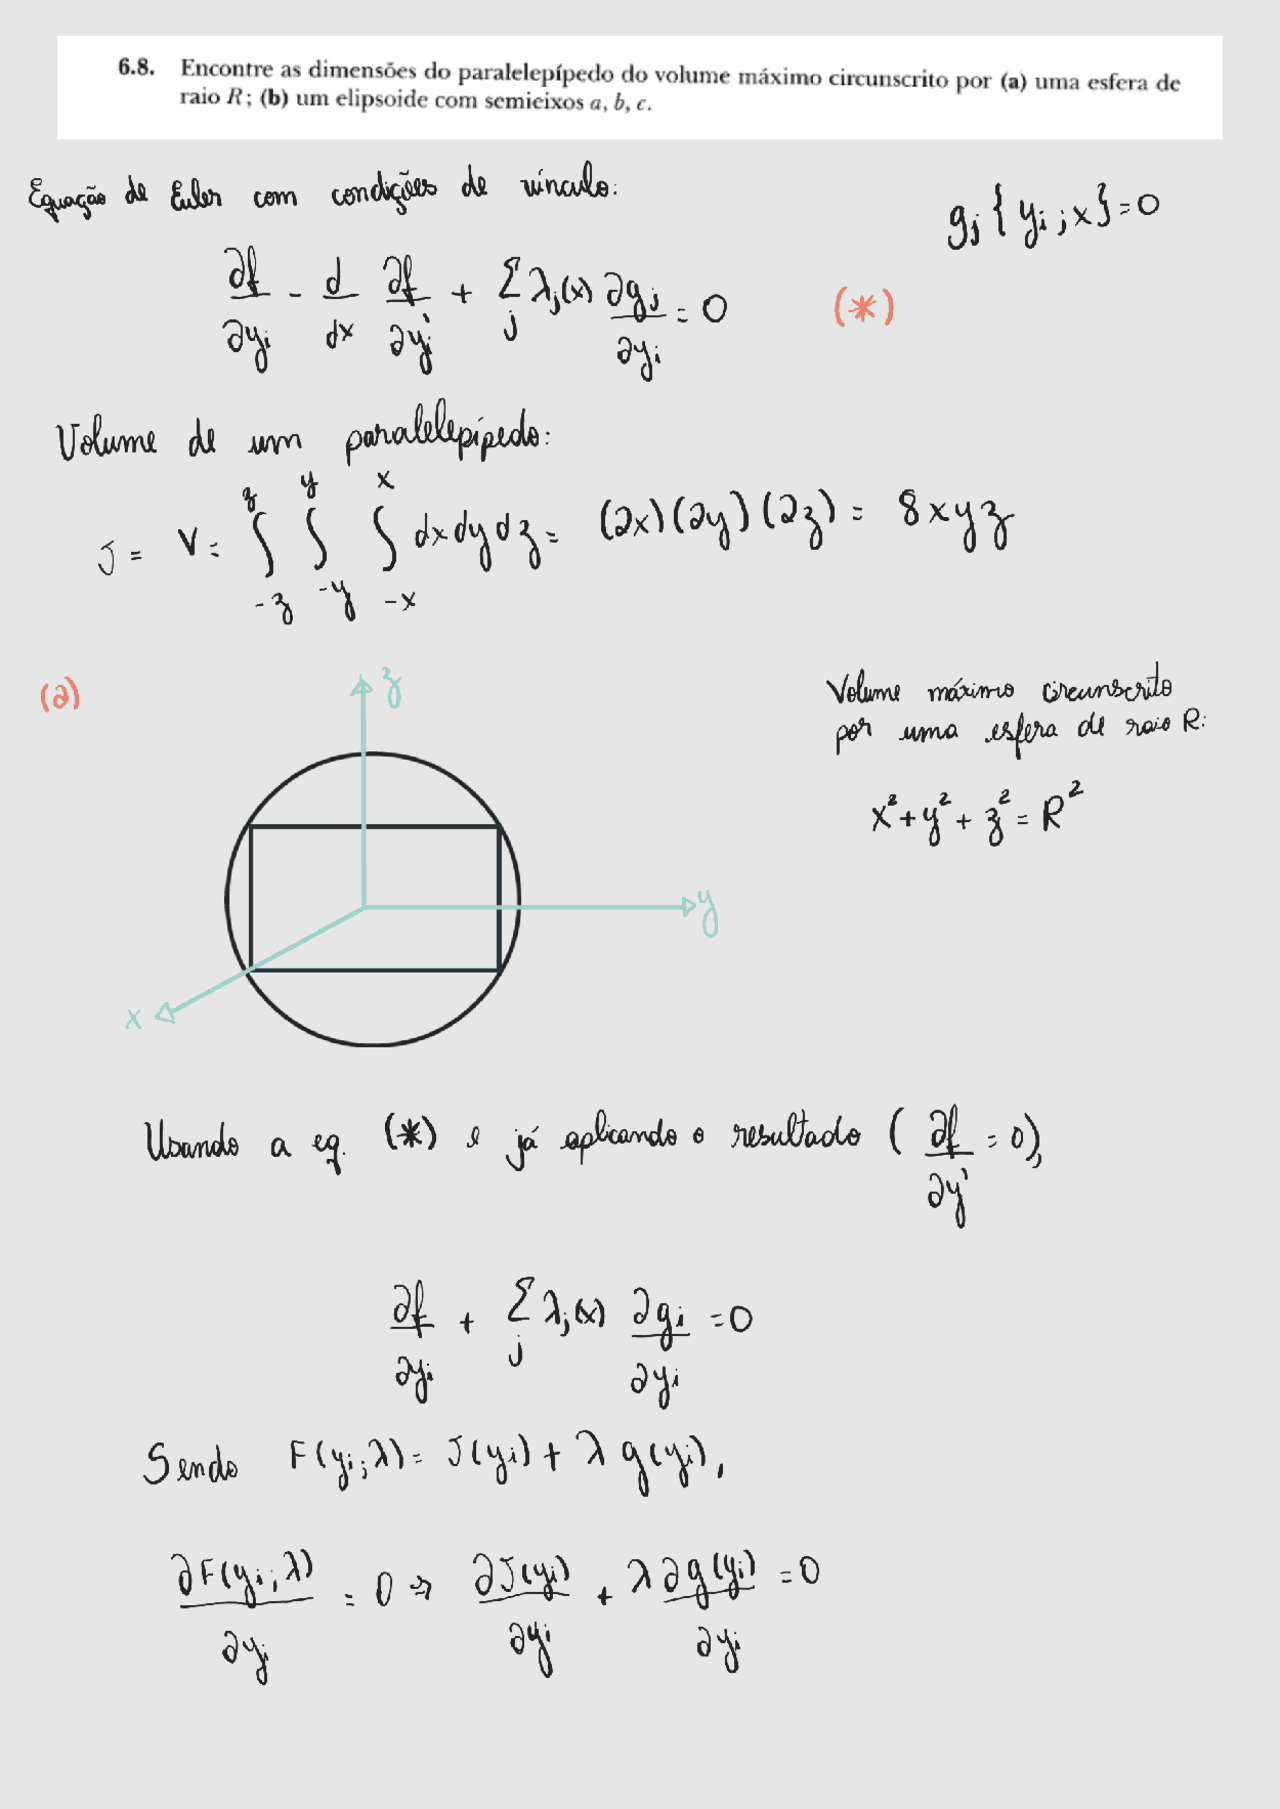 6.8. Encontre as dimensões do paralelepípedo do volume máximo circunscrito por (a) uma esfera de
raio R; (b) um elipsoide com semieixos a, b, c.
Equação de Euler com condições de vínculo:
g_j {y_i ; x} = 0
∂f/∂y_i - d/dx ∂f/∂y_i' + Σ_j λ_j(x) ∂g_j/∂y_i = 0 (*)
Volume de um paralelepípedo:
J = V = ∫_{-z}^{z} ∫_{-y}^{y} ∫_{-x}^{x} dx dy dz = (2x)(2y)(2z) = 8xyz
(a)
z
y
x
Volume máximo circunscrito
por uma esfera de raio R:
x² + y² + z² = R²
Usando a eq. (*) e já aplicando o resultado (∂f/∂y' = 0),
∂f/∂y_i + Σ_j λ_j(x) ∂g_i/∂y_i = 0
Sendo F(y_i; λ) = J(y_i) + λ g(y_i),
∂F(y_i; λ)/∂y_i = 0 ⇒ ∂J(y_i)/∂y_i + λ ∂g(y_i)/∂y_i = 0